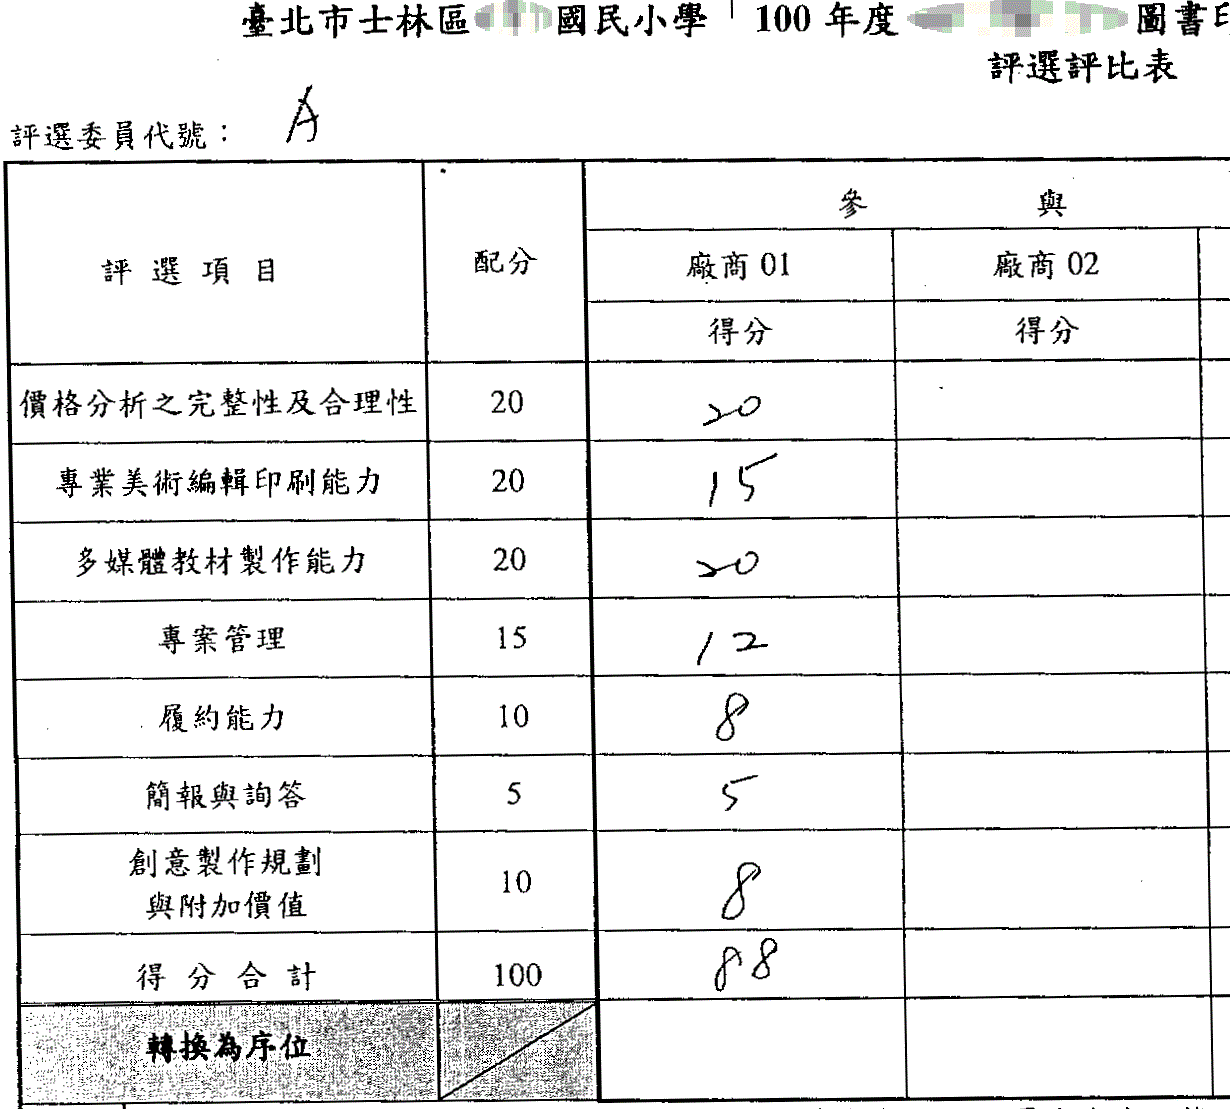 臺北市士林區 國民小學「100 年度 圖書印
評選評比表
評選委員代號： A
評選項目 配分 參與
廠商 01 廠商 02
得分 得分
價格分析之完整性及合理性 20 20
專業美術編輯印刷能力 20 15
多媒體教材製作能力 20 20
專案管理 15 12
履約能力 10 8
簡報與詢答 5 5
創意製作規劃
與附加價值 10 8
得分合計 100 88
轉換為序位